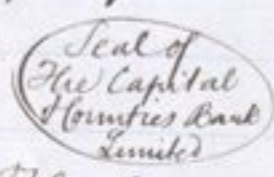 Seal of
The Capital
& Counties Bank
Limited